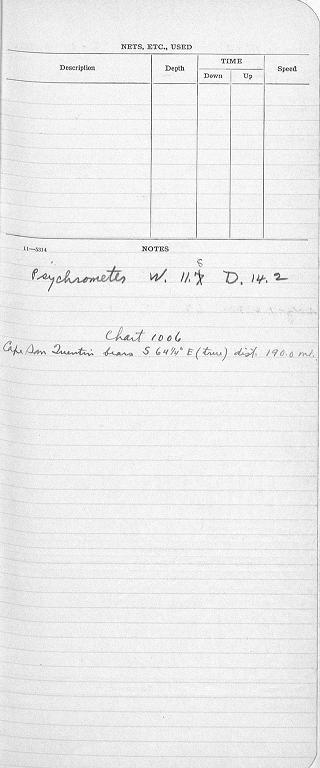 NETS, ETC., USED
Description Depth TIME Speed
Down Up
11—5314 NOTES
8
Psychrometer W. 11.7 D. 14.2
Chart 1006
Cape San Quentin bears S 64¼° E (true) dist. 190.0 ml.